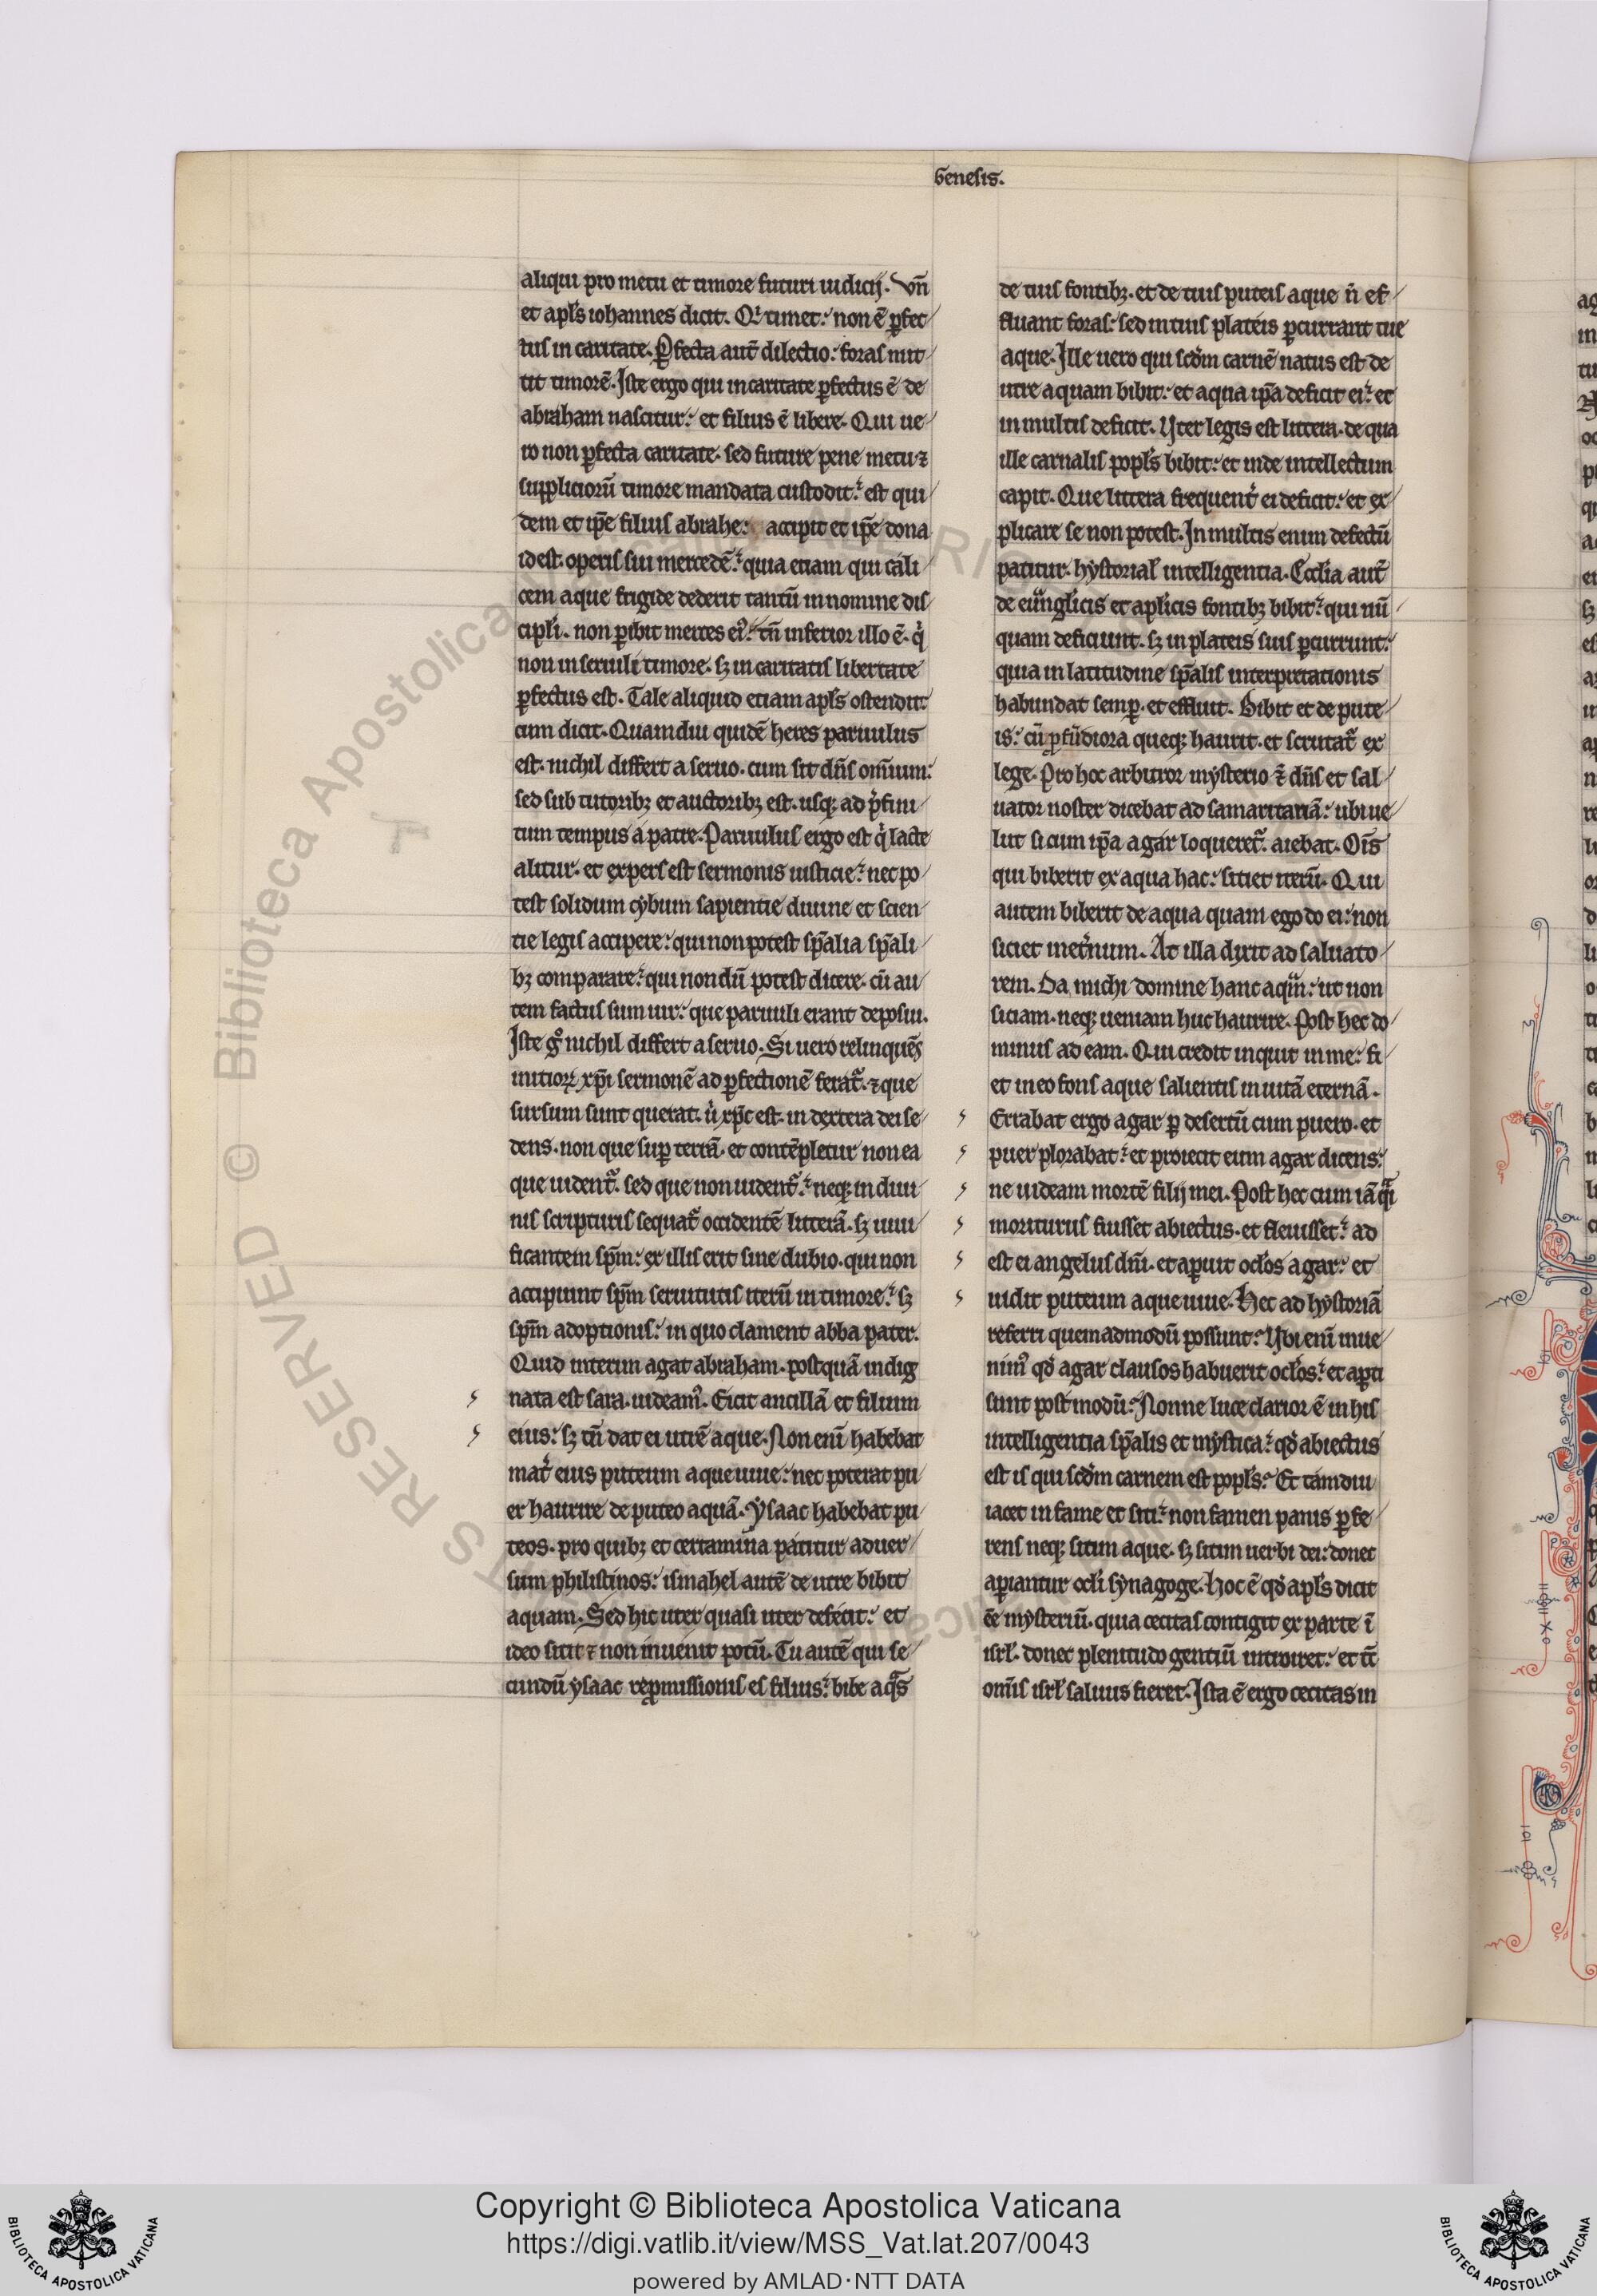 Genesis.
aliqui pro metu et timore futuri iudicij. Vn̄
et apl's iohannes dicit. Qi timet: non ē ꝑfec
tus in caritate. Ꝑfecta aut̄ dilectio: foras mit
tit timorē. Iste ergo qui in caritate ꝑfectus ē de
abraham nascitur: et filius ē libere. Qui ue
ro non ꝑfecta caritate. sed future pene metu ⁊
suppliciorū timore mandata custodit: est qui
dem et ip̄e filius abrahe: accipit et ip̄e dona
id est. operis sui mercedē: quia etiam qui cali
cem aque frigide dederit tantū in nomine dis
cipl'i. non ꝑibit merces ei᷒: tn̄ inferior illo ē. q̇
non in seruili timore. sꝫ in caritatis libertate
ꝑfectus est. Tale aliquid etiam apl's ostendit:
cum dicit. Quamdiu quidē heres paruulus
est. nichil differt a seruo. cum sit dn̄s omīum:
sed sub tutoribꝫ et auctoribꝫ est. usqꝫ ad p̄fini
tum tempus a patre. Paruulus ergo est q̇ lacte
alitur. et expers est sermonis iusticie: nec po
test solidum cybum sapientie diuine et scien
tie legis accipere: qui non potest sp̄alia sp̄ali
bꝫ comparare: qui non dū potest dicere. cū au
tem factus sum uir: que paruuli erant deposui.
Iste gͦ nichil differt a seruo. Si uero relinquēs
initioꝝ xp̄i sermonē ad ꝑfectionē ferat᷑. ⁊ que
sursum sunt querat. u̇ xp̄c est. in dextera dei se
dens. non que suꝑ terrā. et contēpletur non ea
que uident᷑. sed que non uident᷑: neqꝫ in diui
nis scripturis sequat᷑ occidentē litterā. sꝫ uiui
ficantem sp̄m: ex illis erit sine dubio. qui non
accipiunt sp̄m seruitutis iterū in timore: sꝫ
sp̄m adoptionis: in quo clament abba pater.
Quid interim agat abraham. postquā indig
nata est sara. uideam᷒. Eicit ancillā et filium
eius: sꝫ tn̄ dat ei utrē aque. Non enī habebat
mat̄ eius puteum aque uiue: nec poterat pu
er haurire de puteo aquā. Ysaac habebat pu
teos. pro quibꝫ et certamina patitur aduer
sum philistinos: ismahel autē de utre bibit
aquam. Sed hic uter quasi uter deficit: et
ideo sitit ⁊ non inuenit potū. Tu autē qui se
cundū ysaac reꝓmissionis es filius: bibe aq̄s
de tuis fontibꝫ. et de tuis puteis aque n̄ ef
fluant foras: sed in tuis plateis ꝑcurrant tue
aque. Ille uero qui scd̄m carnē natus est de
utre aquam bibit: et aqua ip̄a deficit ei: et
in multis deficit. Vter legis est littera. de qua
ille carnalis popl's bibit: et inde intellectum
capit. Que littera frequent̄ ei deficit: et ex
plicare se non potest. In multis enim defectū
patitur. hystorial' intelligentia. Eccl'ia aut̄
de eung̃licis et apl'icis fontibꝫ bibit: qui nū
quam deficiunt. sꝫ in plateis suis ꝑcurrunt:
quia in latitudine sp̄alis interpretationis
habundat semꝑ. et effluit. Bibit et de pute
is: cū ꝓfūdiora queqꝫ haurit. et scrutat᷑ ex
lege. Pro hoc arbitror mysterio ⁊ dn̄s et sal
uator noster dicebat ad samaritanā: ubi ue
lut si cum ip̄a agar loqueret᷑. aiebat. Oīs
qui biberit ex aqua hac: sitiet iterū. Qui
autem biberit de aqua quam ego do ei: non
siciet inet̄num. At illa dixit ad saluato
rem. Da michi domine hanc aqm̄: ut non
siciam. neqꝫ ueniam huc haurire. Post hec do
minus ad eam. Qui credit inquit in me: fi
et in eo fons aque salientis in uitā eternā.
Errabat ergo agar ꝑ desertū cum puero. et
puer plorabat: et proiecit eum agar dicens:
ne uideam mortē filij mei. Post hec cum iā q̄i
moriturus fuisset abiectus. et fleuisset: ad
est ei angelus dn̄i. et aperuit ocl'os agar: et
uidit puteum aque uiue. Hec ad hystoriā
referri quemadmodū possunt: Vbi enī inue
nim᷒ qd̄ agar clausos habuerit ocl'os: et aꝑti
sunt post modū: Nonne luce clarior ē in his
intelligentia sp̄alis et mystica: qd̄ abiectus
est is qui scd̄m carnem est popl's: Et tamdiu
iacet in fame et siti: non famen panis ꝑfe
rens neqꝫ sitim aque. sꝫ sitim uerbi dei: donec
aꝑiantur ocl'i synagoge. Hoc ē qd̄ apl's dicit
ēe mysteriū. quia cecitas contigit ex parte ī
isrl'. donec plenitudo gentiū introiret: et tc̄
omīs isrl' saluus fieret. Ista ē ergo cecitas in
Copyright © Biblioteca Apostolica Vaticana
https://digi.vatlib.it/view/MSS_Vat.lat.207/0043
powered by AMLAD·NTT DATA
BIBLIOTECA APOSTOLICA VATICANA
BIBLIOTECA APOSTOLICA VATICANA